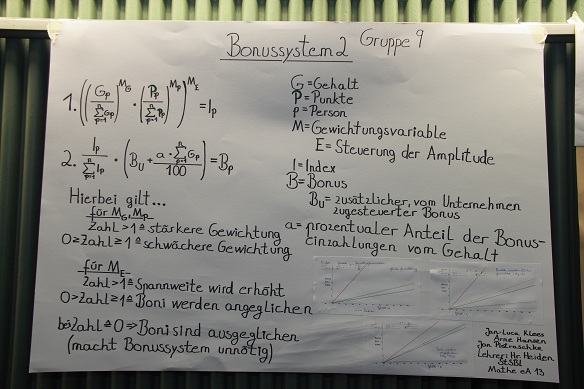 Bonussystem 2 Gruppe 9
1. ((Gp / Σ(p=1..n) Gp)^MG · (Pp / Σ(p=1..n) Pp)^Mp)^ME = Ip
2. Ip / Σ(p=1..n) Ip · (BU + a · Σ(p=1..n) Gp / 100) = Bp
G = Gehalt
P = Punkte
p = Person
M = Gewichtungsvariable
E = Steuerung der Amplitude
I = Index
B = Bonus
BU = zusätzlicher, vom Unternehmen
zugesteuerter Bonus
a = prozentualer Anteil der Bonus-
einzahlungen vom Gehalt
Hierbei gilt...
für MG, Mp
Zahl > 1 ≙ stärkere Gewichtung
0 ≥ Zahl ≥ 1 ≙ schwächere Gewichtung
für ME
Zahl > 1 ≙ Spannweite wird erhöht
0 > Zahl > 1 ≙ Boni werden angeglichen
bei Zahl ≙ 0 => Boni sind ausgeglichen
(macht Bonussystem unnötig)
Jan-Luca Klees
Arne Hansen
Jan Pietraschke
Lehrer: Hr. Heiden
StSBl
Mathe eA 13